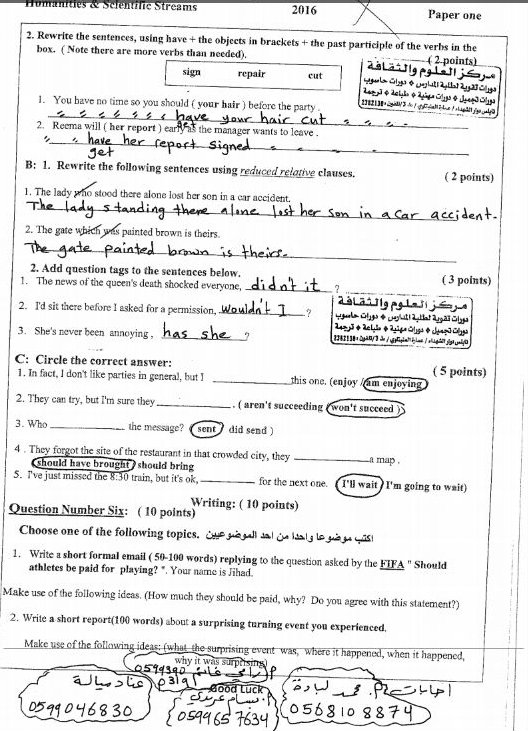 Humanities & Scientific Streams 2016 Paper one
2. Rewrite the sentences, using have + the objects in brackets + the past participle of the verbs in the
box. ( Note there are more verbs than needed). ( 2 points)
sign repair cut
1. You have no time so you should ( your hair ) before the party .
have your hair cut
2. Reema will ( her report ) early as the manager wants to leave .
have her report signed
get
B: 1. Rewrite the following sentences using reduced relative clauses. ( 2 points)
1. The lady who stood there alone lost her son in a car accident.
The lady standing there alone lost her son in a car accident.
2. The gate which was painted brown is theirs.
The gate painted brown is theirs.
2. Add question tags to the sentences below. ( 3 points)
1. The news of the queen's death shocked everyone, didn't it ?
2. I'd sit there before I asked for a permission, Wouldn't I ?
3. She's never been annoying , has she ?
C: Circle the correct answer: ( 5 points)
1. In fact, I don't like parties in general, but I ____________ this one. (enjoy / am enjoying)
2. They can try, but I'm sure they ____________ . ( aren't succeeding / won't succeed )
3. Who ____________ the message? ( sent / did send )
4 . They forgot the site of the restaurant in that crowded city, they ____________ a map .
(should have brought / should bring
5. I've just missed the 8:30 train, but it's ok, ____________ for the next one. ( I'll wait / I'm going to wait)
Writing: ( 10 points)
Question Number Six: ( 10 points)
Choose one of the following topics. اكتب موضوعا واحدا من اجل الموضوعين
1. Write a short formal email ( 50-100 words) replying to the question asked by the FIFA " Should
athletes be paid for playing? ". Your name is Jihad.
Make use of the following ideas. (How much they should be paid, why? Do you agree with this statement?)
2. Write a short report(100 words) about a surprising turning event you experienced.
Make use of the following ideas: (what the surprising event was, where it happened, when it happened,
why it was surprising)
Good Luck
0599046830
0599657634
0568108874